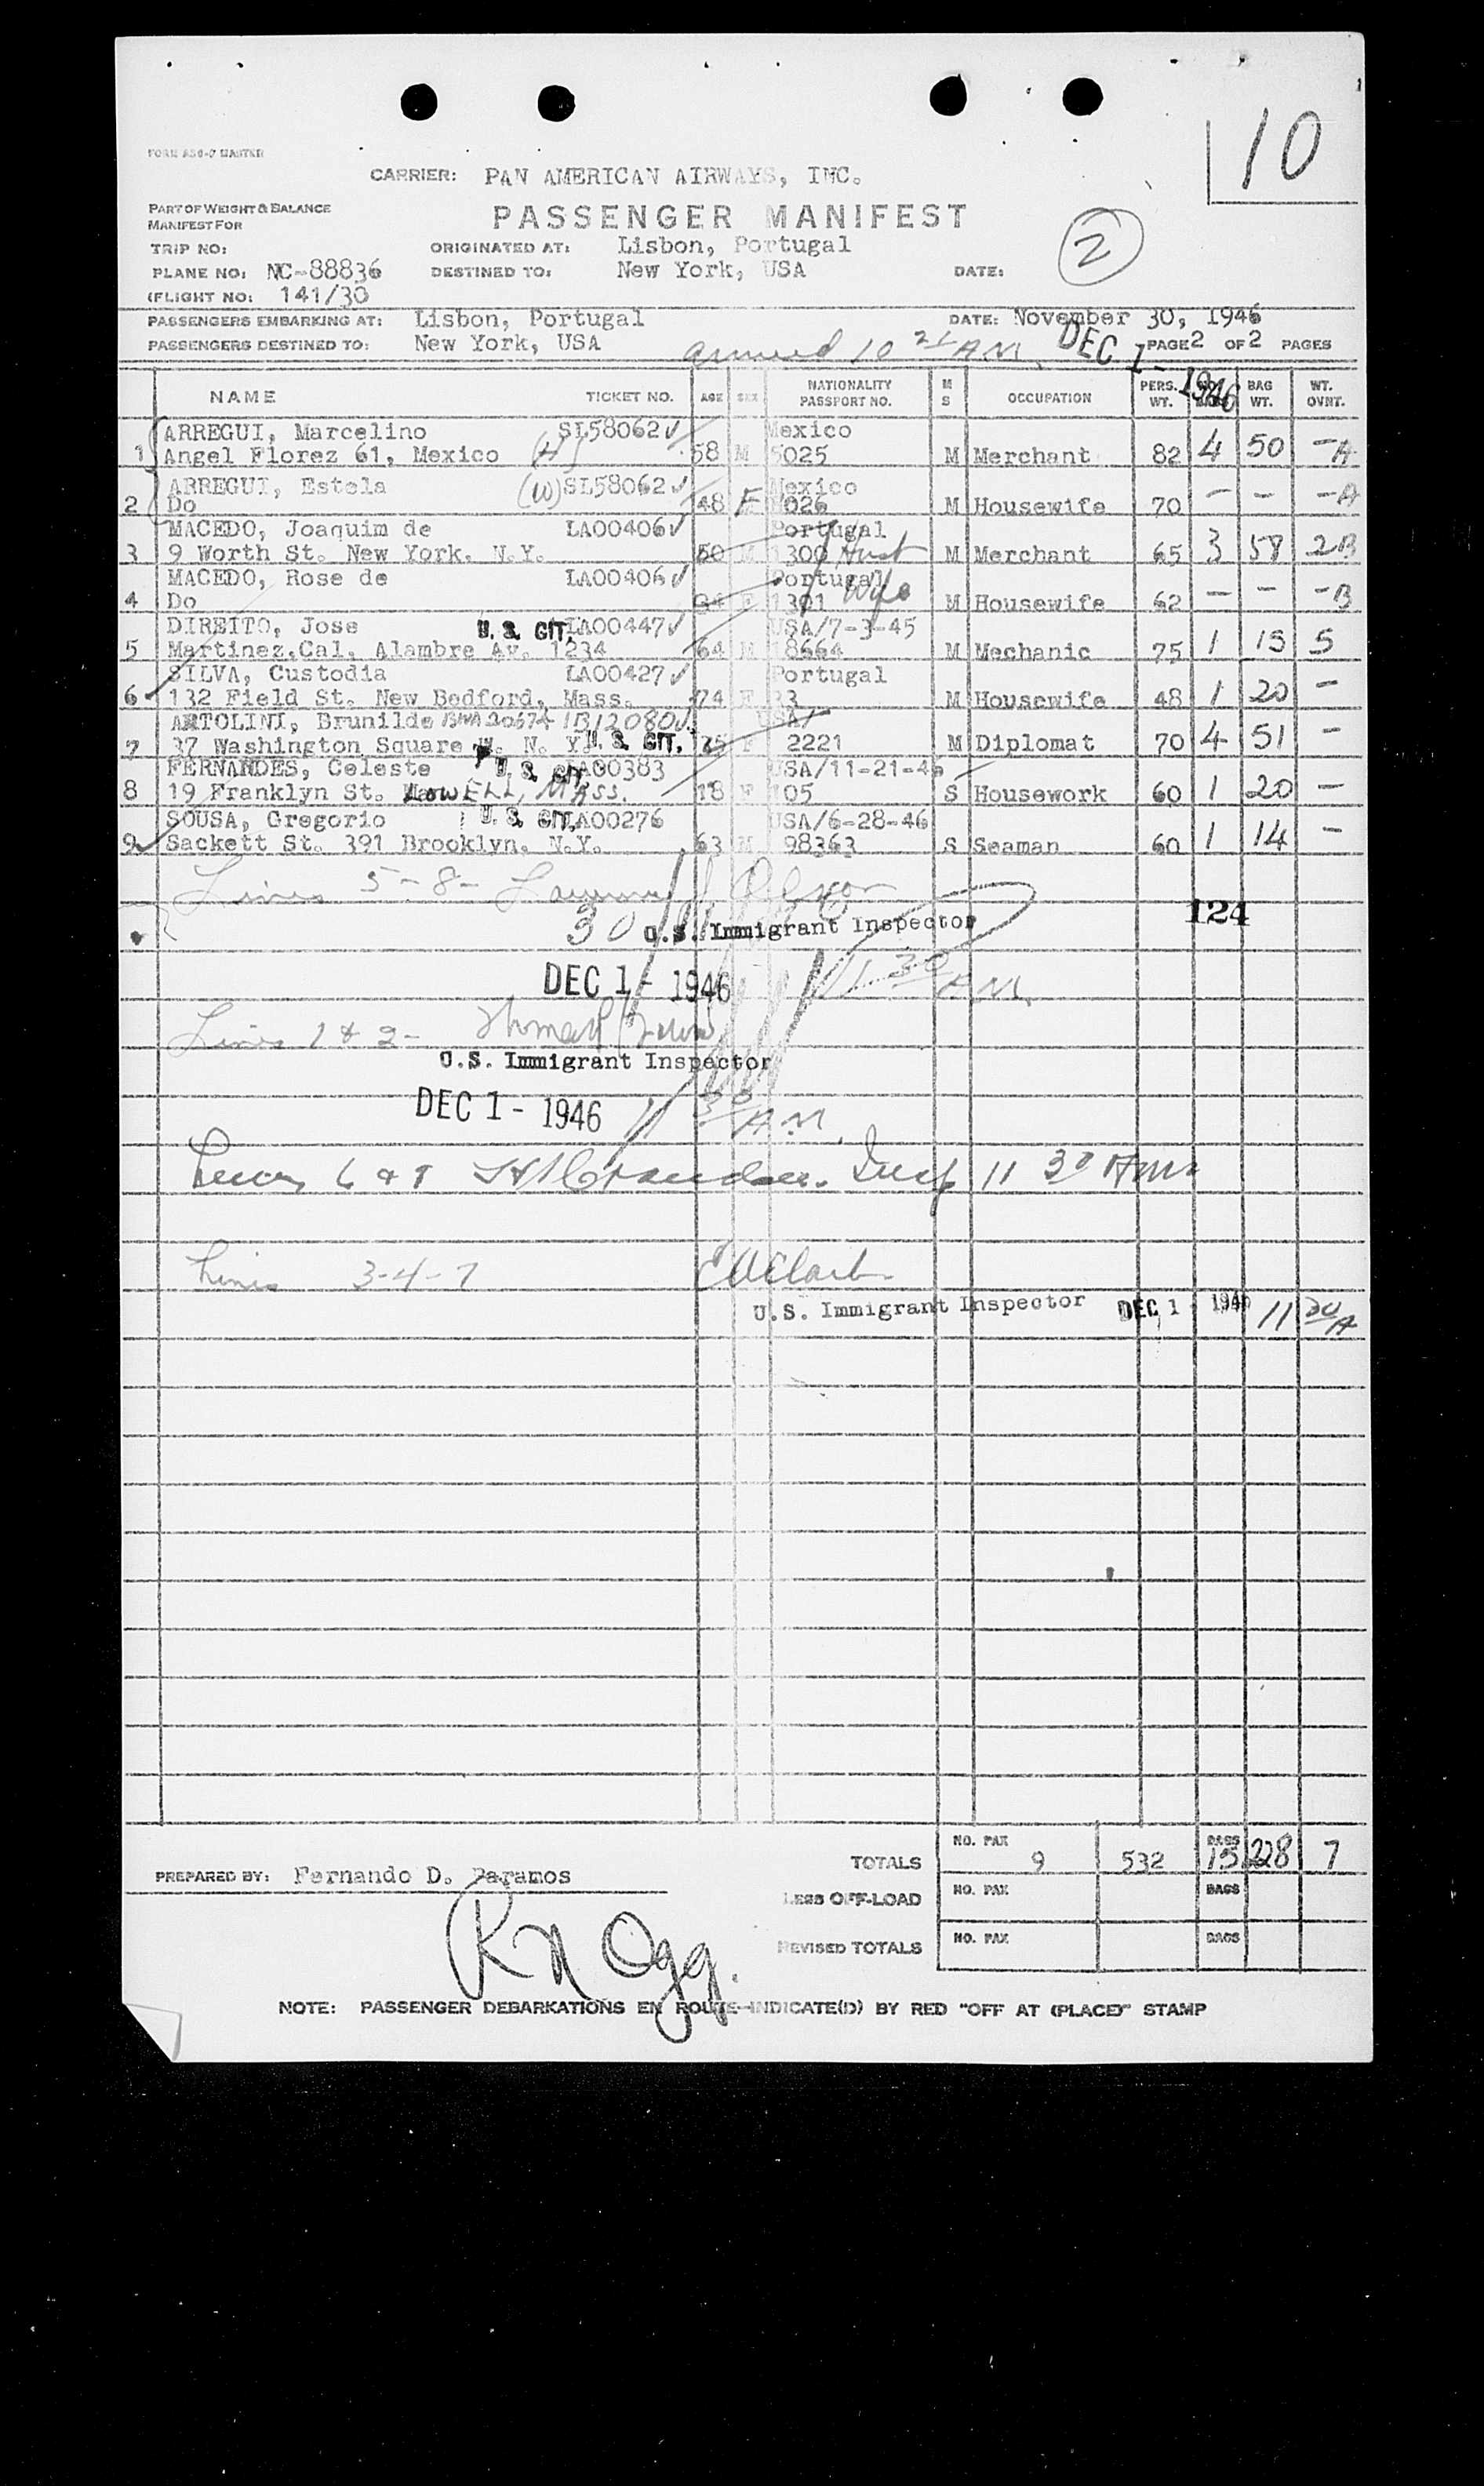 10
FORM 
CARRIER: PAN AMERICAN AIRWAYS, INC.
PART OF WEIGHT & BALANCE
MANIFEST FOR
PASSENGER MANIFEST
2
TRIP NO:
ORIGINATED AT: Lisbon, Portugal
PLANE NO: NC-88836
DESTINED TO: New York, USA
DATE:
(FLIGHT NO: 141/30
PASSENGERS EMBARKING AT: Lisbon, Portugal
DATE: November 30, 1946
PASSENGERS DESTINED TO: New York, USA
arrived 10 21 AM
DEC 1 - 1946
PAGE 2 OF 2 PAGES
NAME TICKET NO. AGE SEX NATIONALITY PASSPORT NO. M S OCCUPATION PERS. WT. BAG WT. WT. OVHT.
ARREGUI, Marcelino SL58062 Mexico
1 Angel Florez 61, Mexico (H) 58 M 5025 M Merchant 82 4 50 - A
ARREGUI, Estela (W) SL58062 Mexico
2 Do 48 F 5026 M Housewife 70 - - - A
MACEDO, Joaquim de LA00406 Portugal
3 9 Worth St. New York. N.Y. 50 M 1300 Husb M Merchant 65 3 58 2B
MACEDO, Rose de LA00406 Portugal
4 Do F 1301 Wife M Housewife 62 - - - B
DIREITO, Jose U.S. CIT. LA00447 USA/7-3-45
5 Martinez,Cal. Alambre Av. 1234 64 M 18664 M Mechanic 75 1 15 5
SILVA, Custodia LA00427 Portugal
6 132 Field St. New Bedford, Mass. 74 F 33 M Housewife 48 1 20 -
ARTOLINI, Brunilde BWA20674 1B12080 USA/
7 37 Washington Square W. N. Y. U.S. CIT. F 2221 M Diplomat 70 4 51 -
FERNANDES, Celeste U.S. CIT. LA00383 USA/11-21-46
8 19 Franklyn St. LOWELL, MASS. 18 F 105 S Housework 60 1 20 -
SOUSA, Gregorio U.S. CIT. LA00276 USA/6-28-46
9 Sackett St. 391 Brooklyn. N.Y. 63 M 98363 S Seaman 60 1 14 -
Lines 5-8-
124
30 U.S. Immigrant Inspector
DEC 1 - 1946 11 30 AM
Lines 1 & 2-
U.S. Immigrant Inspector
DEC 1 - 1946 11 30 AM
Lines 6 & 9 Insp 11 30 AM
Lines 3-4-7 EW Clark
U.S. Immigrant Inspector DEC 1 1946 11 30 A
TOTALS NO. PAX 9 532 BAGS 15 228 7
PREPARED BY: Fernando D. Paramos
LESS OFF-LOAD NO. PAX BAGS
REVISED TOTALS NO. PAX BAGS
RN Ogg.
NOTE: PASSENGER DEBARKATIONS EN ROUTE-INDICATE(D) BY RED "OFF AT (PLACE)" STAMP